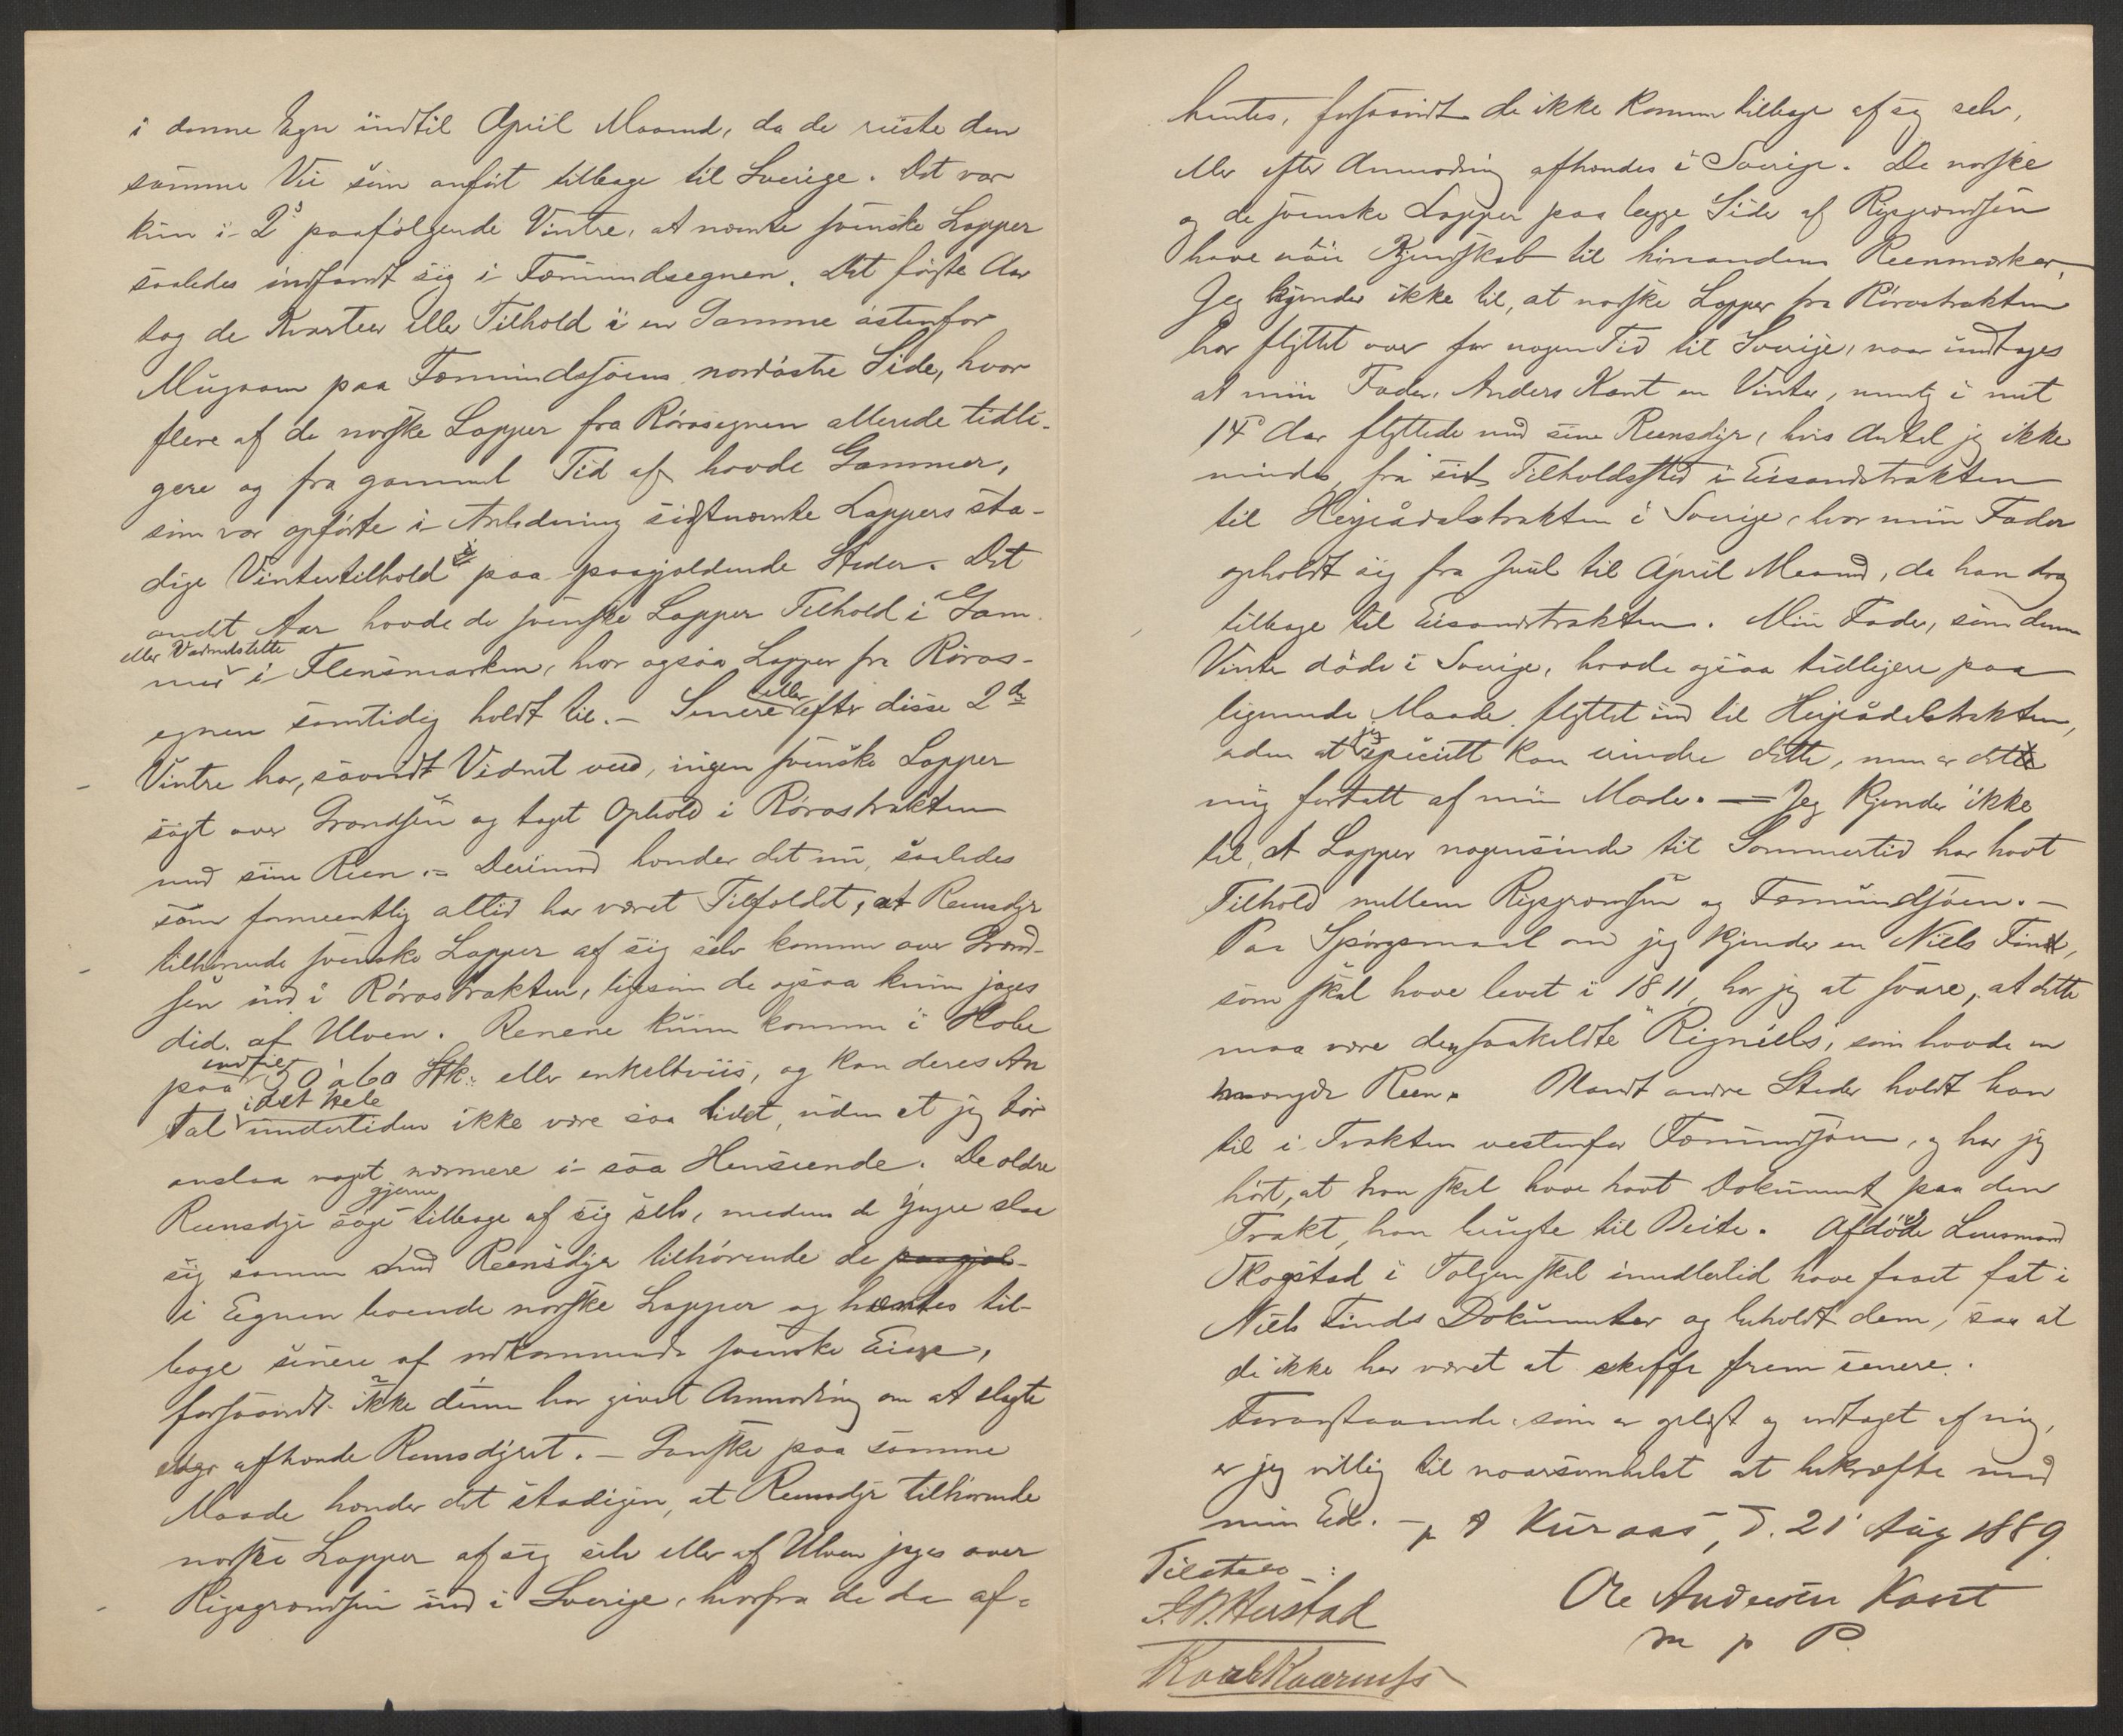 i denne Egn indtil April Maaned, da de reiste den
samme Vei som anført tilbage til Sverige. Det var
kun i 2 paafølgende Vintre, at nævnte svenske Lapper
saaledes indfandt sig i Fæmundsegnen. Det første Aar
tog de Kvarteer eller Tilhold i en Gamme østenfor
Mugaaen paa Fæmundsjøens nordøstre Side, hvor
flere af de norske Lapper fra Rørosegnen allerede tidli-
gere og fra gammel Tid af havde Gammer,
som var opførte i Anledning sidstnævnte Lappers sta-
dige Vintertilhold paa paagjældende Steder. Det
andet Aar havde de svenske Lapper Tilhold i Gam-
eller Vadmelstelte
mer i Flensmarken, hvor ogsaa Lapper fra Røros-
egnen samtidig holdt til. – Senere eller efter disse 2de
Vintre har, saavidt Vidnet veed, ingen svenske Lapper
søgt over Grændsen og taget Ophold i Rørostrakten
med sine Reen. – Derimod hænder det nu, saaledes
som formeentlig altid har været Tilfældet, at Reensdyr
tilhørende svenske Lapper af sig selv komme over Grænd-
sen ind i Rørostrakten, ligesom de ogsaa kunne jages
did af Ulven. Renene kunne komme i Flokke
indtil
paa 50 à 60 Stk. eller enkeltviis, og kan deres An
i det hele
tal undertiden ikke være saa lidet, uden at jeg tør
anslaa noget nærmere i saa Henseende. De ældre
gjerne
Reensdyr søge tilbage af sig selv, medens de yngre slaa
sig sammen med Reensdyr tilhørende de paagjæl-
i Egnen boende norske Lapper og hæntes til-
bage senere af vedkommende svenske Eiere,
forsaavidt ikke denne har givet Anmodning om at slagte
eller afhænde Reensdyret. – Ganske paa samme
Maade hænder det stadigen, at Reensdyr tilhørende
norske Lapper af sig selv eller af Ulven jages over
Rigsgrændsen ind i Sverige, hvorfra de da af-
hentes, forsaavidt de ikke komme tilbage af sig selv,
eller efter Anmodning afhændes i Sverige. De norske
og de svenske Lapper paa begge Sider af Rigsgrændsen
have nøie Kjendskab til hinandens Reenmærker.
Jeg kjender ikke til, at norske Lapper fra Rørostrakten
har flyttet over for nogen Tid til Sverige, naar undtages
at min Fader, Anders Kant en Vinter, nemlig i mit
14de Aar flyttede med sine Reensdyr, hvis Antal jeg ikke
mindes, fra sit Tilholdssted i Eisandtrakten
til Herjeådalstrakten i Sverige, hvor min Fader
opholdt sig fra Juul til April Maaned, da han drog
tilbage til Eisandtrakten. Min Fader, som denne
Vinter døde i Sverige, havde ogsaa tidligere paa
lignende Maade flyttet ind til Herjeådalstrakten,
uden at jeg specielt kan erindre dette, men er dette
mig fortalt af min Moder. – Jeg kjender ikke
til, at Lapper nogensinde til Sommertid har havt
Tilhold mellem Rigsgrændsen og Fæmundsjøen. –
Paa Spørgsmaal om jeg kjender en Niels Find,
som skal have levet i 1811, har jeg at svare, at dette
maa være den saakaldte "Rigniels", som havde en
mængde Reen. Blandt andre Steder holdt han
til i Trakten vestenfor Fæmundsjøen, og har jeg
hørt, at han skal have havt Dokument paa den
Trakt, han brugte til Beite. Afdøde Lensmand
Skogstad i Tolgen skal imidlertid have faaet fat i
Niels Finds Dokumenter og beholdt dem, saa at
de ikke har været at skaffe frem senere.
Foranstaaende, som er oplæst og vedtaget af mig,
er jeg villig til naarsomhelst at bekræfte med
min Ed. – p t Kuraas, d. 21 Aug 1889.
Tilstede:
Ole Andersen Kant
m p P.